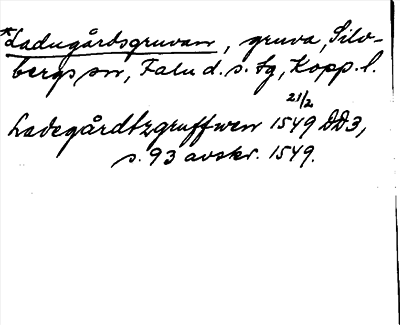 *Ladugårdsgruvan, gruva, Silv-
bergs sn, Falu d. s. tg, Kopp. l.
Ladegårdtzgruffwen 1549 21/2 DD3,
s. 93 avskr. 1549.